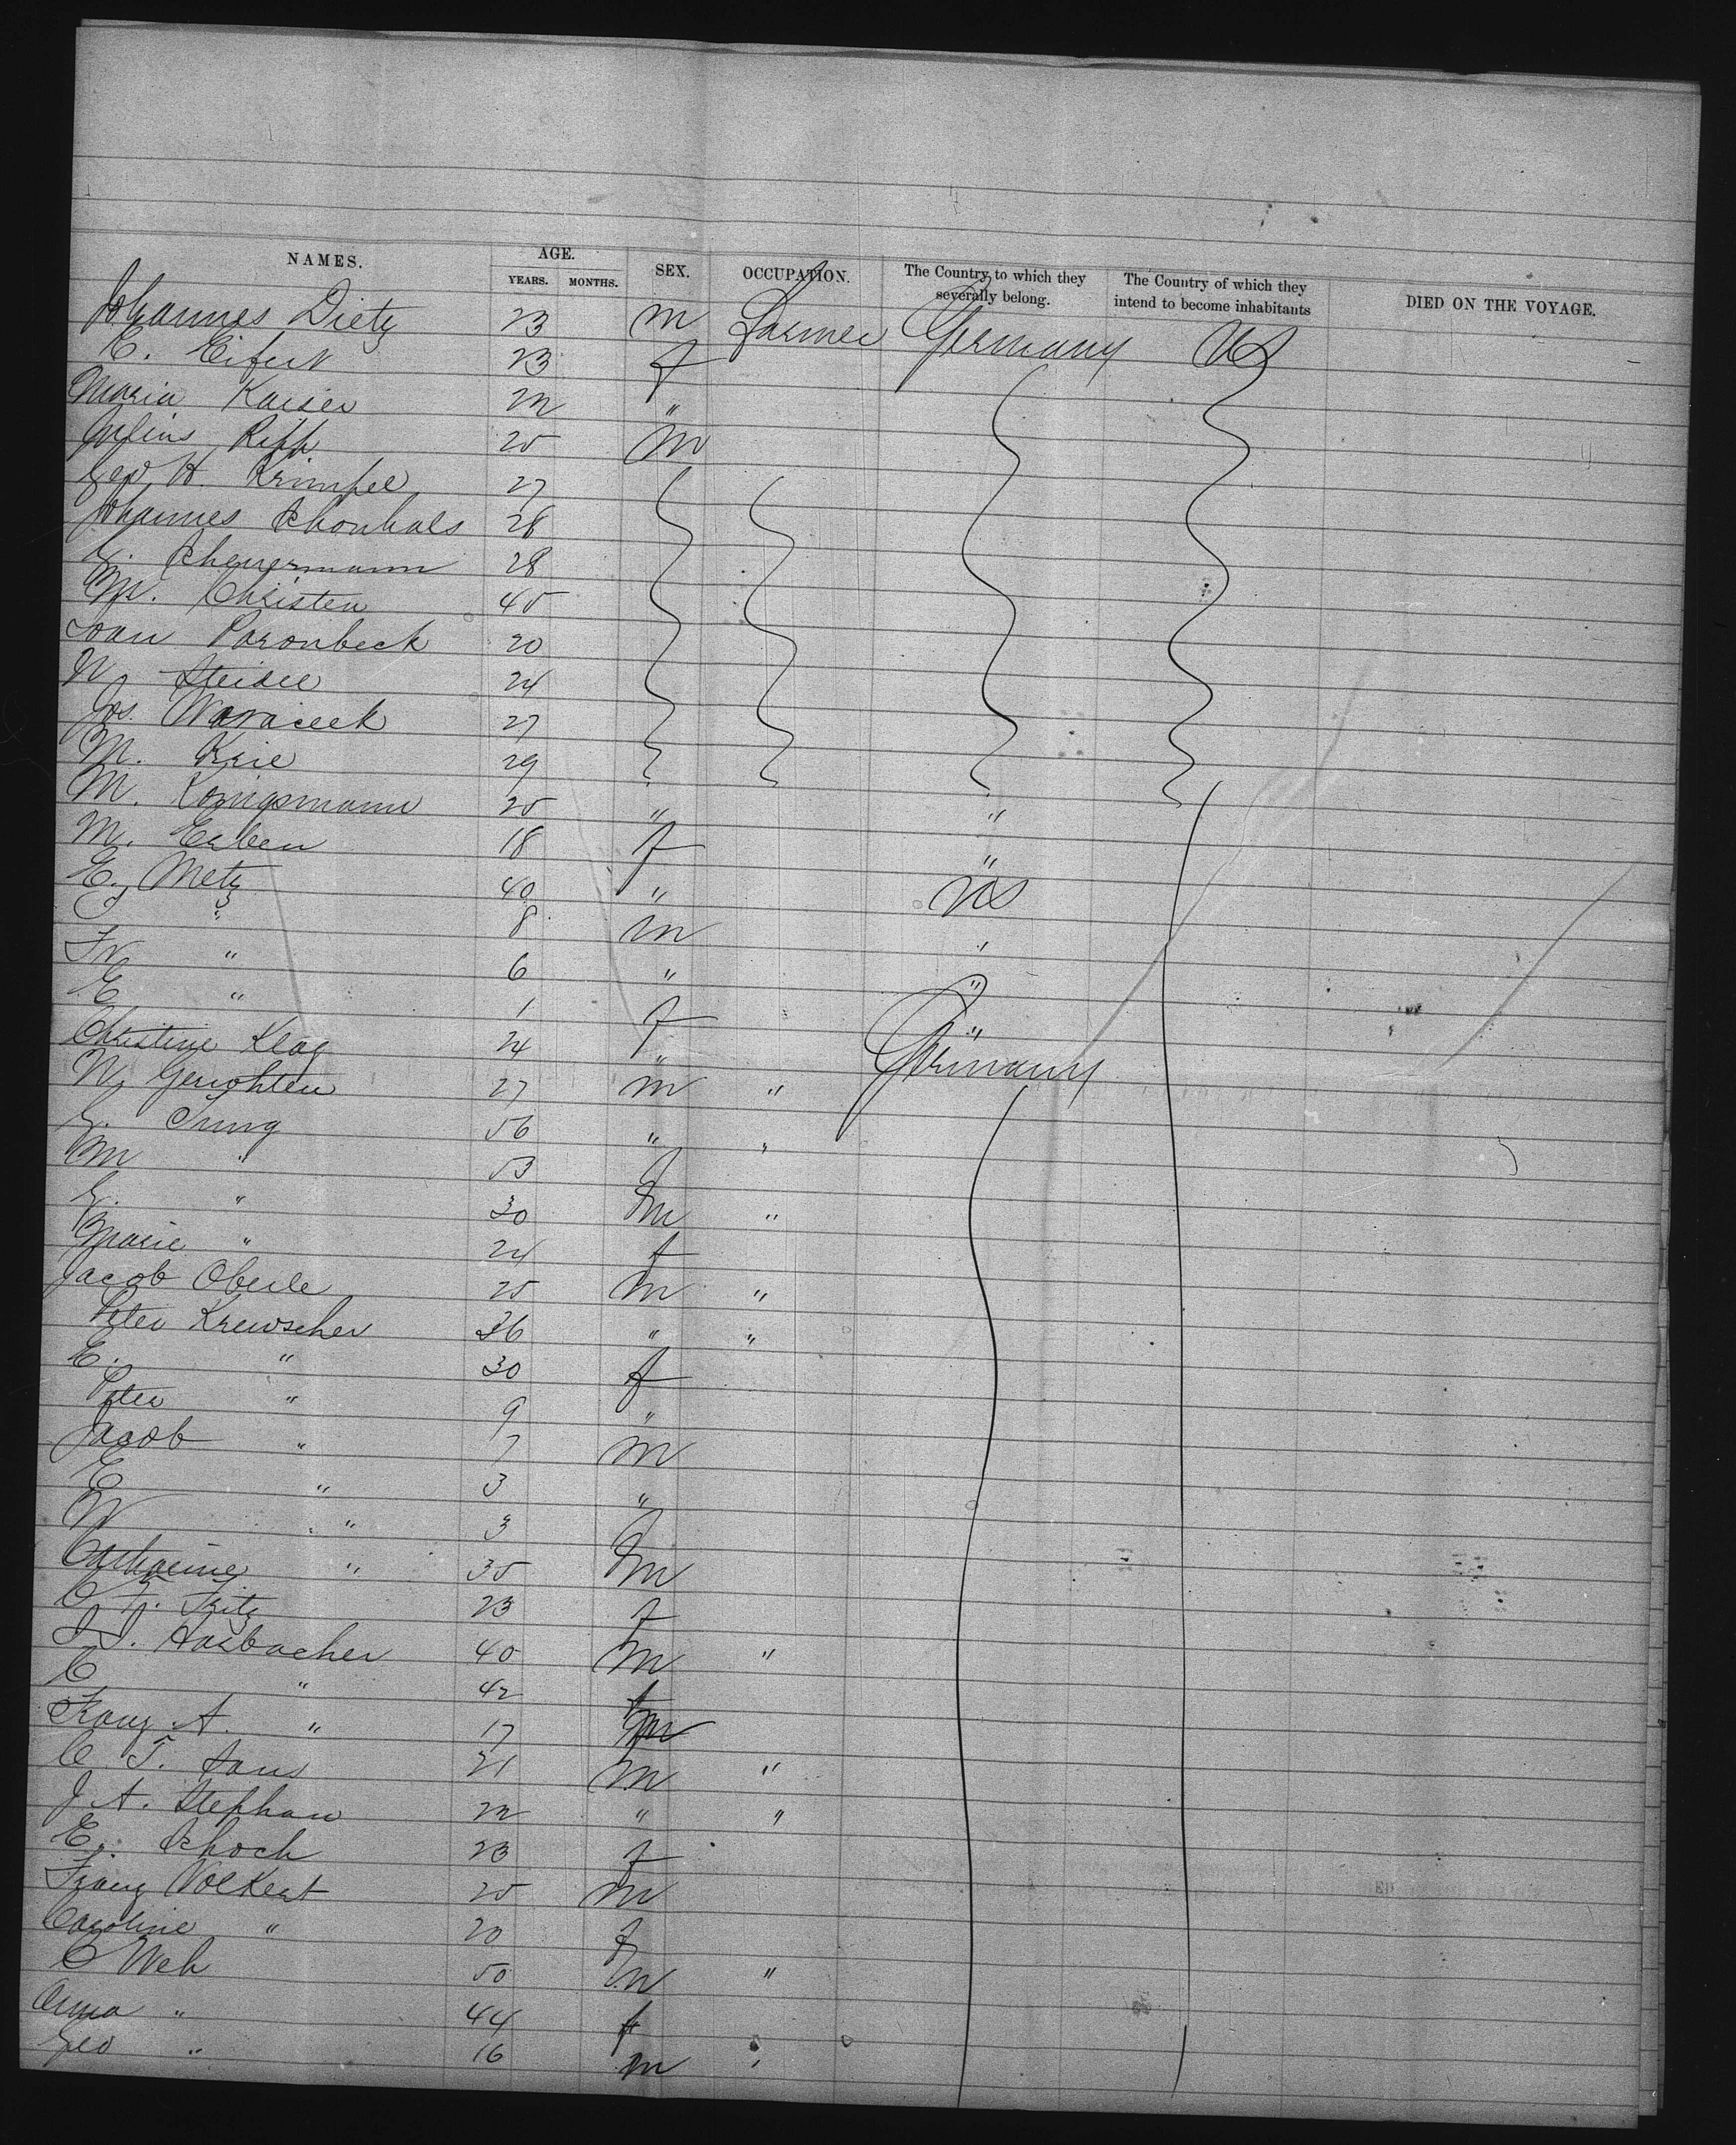 NAMES. AGE. YEARS. MONTHS. SEX. OCCUPATION. The Country to which they severally belong. The Country of which they intend to become inhabitants DIED ON THE VOYAGE.
Johannes Dietz 23 m Farmer Germany US
E. Eifert 23 f
Maria Kaiser 22 "
Julius Rupp 25 m
Geo. H. Krimpel 27
Johannes Schonhals 28
G. Scheuermann 28
M. Christen 45
Joan Paronbeck 20
W Steidel 24
Jos. Waraceck 27
M. Krie 29
M. Konigsmann 25 " "
M. Erben 18 f "
E. Metz 40 " US
" 8 m "
Fr " 6 " "
E " 1 f "
Christine Klag 24 " Germany
W. Gerichten 27 m "
G. Jung 56 " "
M " 53 f
G. " 30 m "
Marie " 24 f
Jacob Oberle 25 m "
Peter Krewscher 36 " "
E. " 30 f
Peter " 9 "
Jacob " 7 m
E " 3 "
W " 3 f
Catharine " 35 m
C F. Fritz 23 f
J. J. Hasbacher 40 m "
C " 42 f
Franz A. " 17 m
C T. Haus 21 m "
J A. Stephan 22 " "
E. Schoch 23 f
Franz Volkert 25 m
Caroline " 20 f
C Weh 50 m "
Anna " 44 f
Geo " 16 m "